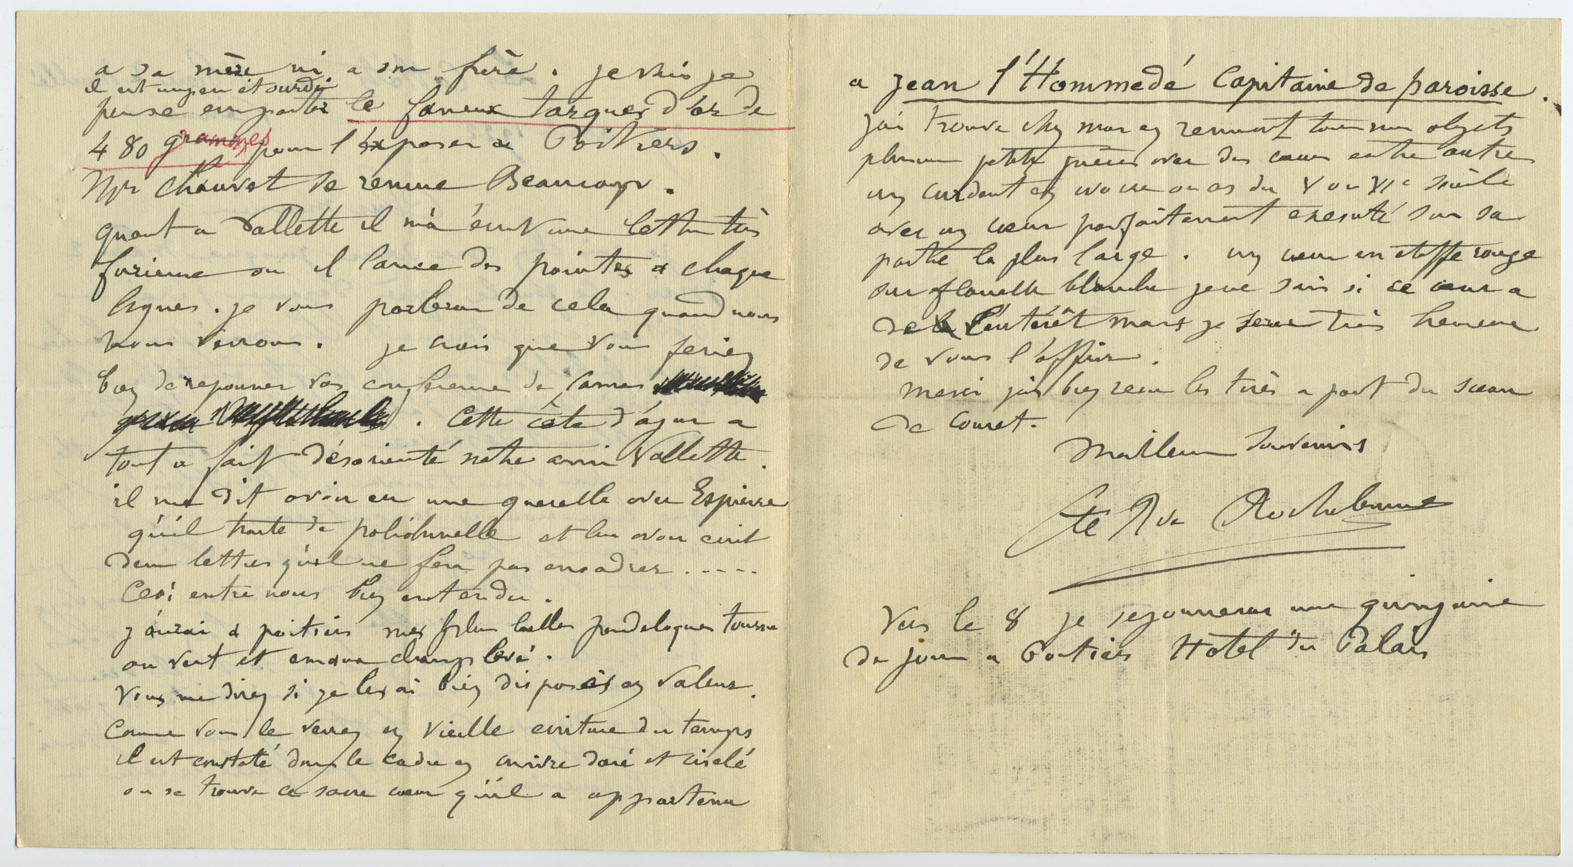 a sa mère ni a son frère. je vais je
il est un peu étourdi
pense emporter le fameux torques d'or de
480 grammes pour l'exposer a Poitiers.
Mr Chauvet se remue Beaucoup.
quant a Vallette il m'a écrit une lettre très
furieuse ou il lance des pointes a chaque
lignes. je vous parlerai de cela quand nous
nous verrons. je crois que vous feriez
bien de repousser vos conference de Cannes
. Cette côte d'azur a
tout a fait désorienté notre ami Vallette.
il me dit avoir eu une querelle avec Espierre
qu'il traite de polichinelle et lui avoir écrit
deux lettres qu'il ne fera pas encadrer .....
Ceci entre nous bien entendu.
j'aurai a poitiers mes plus belles pendeloques
ou vert et emaux champlevé.
Vous me direz si je les ai bien disposés en valeur.
Comme vous le verrez en vieille ecriture du temps
il est constaté dans le cadre en cuivre doré et ciselé
ou se trouve ce sacré cœur qu'il a appartenu
a Jean l'Hommedé Capitaine de paroisse.
j'ai trouvé chez moi en remuant tous mes objets
plusieurs petites pièces avec des cœurs entre autres
un curdent en ivoire ou os du XV ou XVIe siècle
avec un cœur parfaitement executé sur sa
partie la plus large. un cœur en étoffe rouge
sur flanelle blanche je ne sais si ce cœur a
de l'interêt mais je serai très heureux
de vous l'offrir.
Merci j'ai bien reçu les tirés a part du sceau
de Couret.
Meilleurs Souvenirs
Cte R de Rochebrune
Vers le 8 je sejournerai une quinzaine
de jours a Poitiers Hotel du Palais